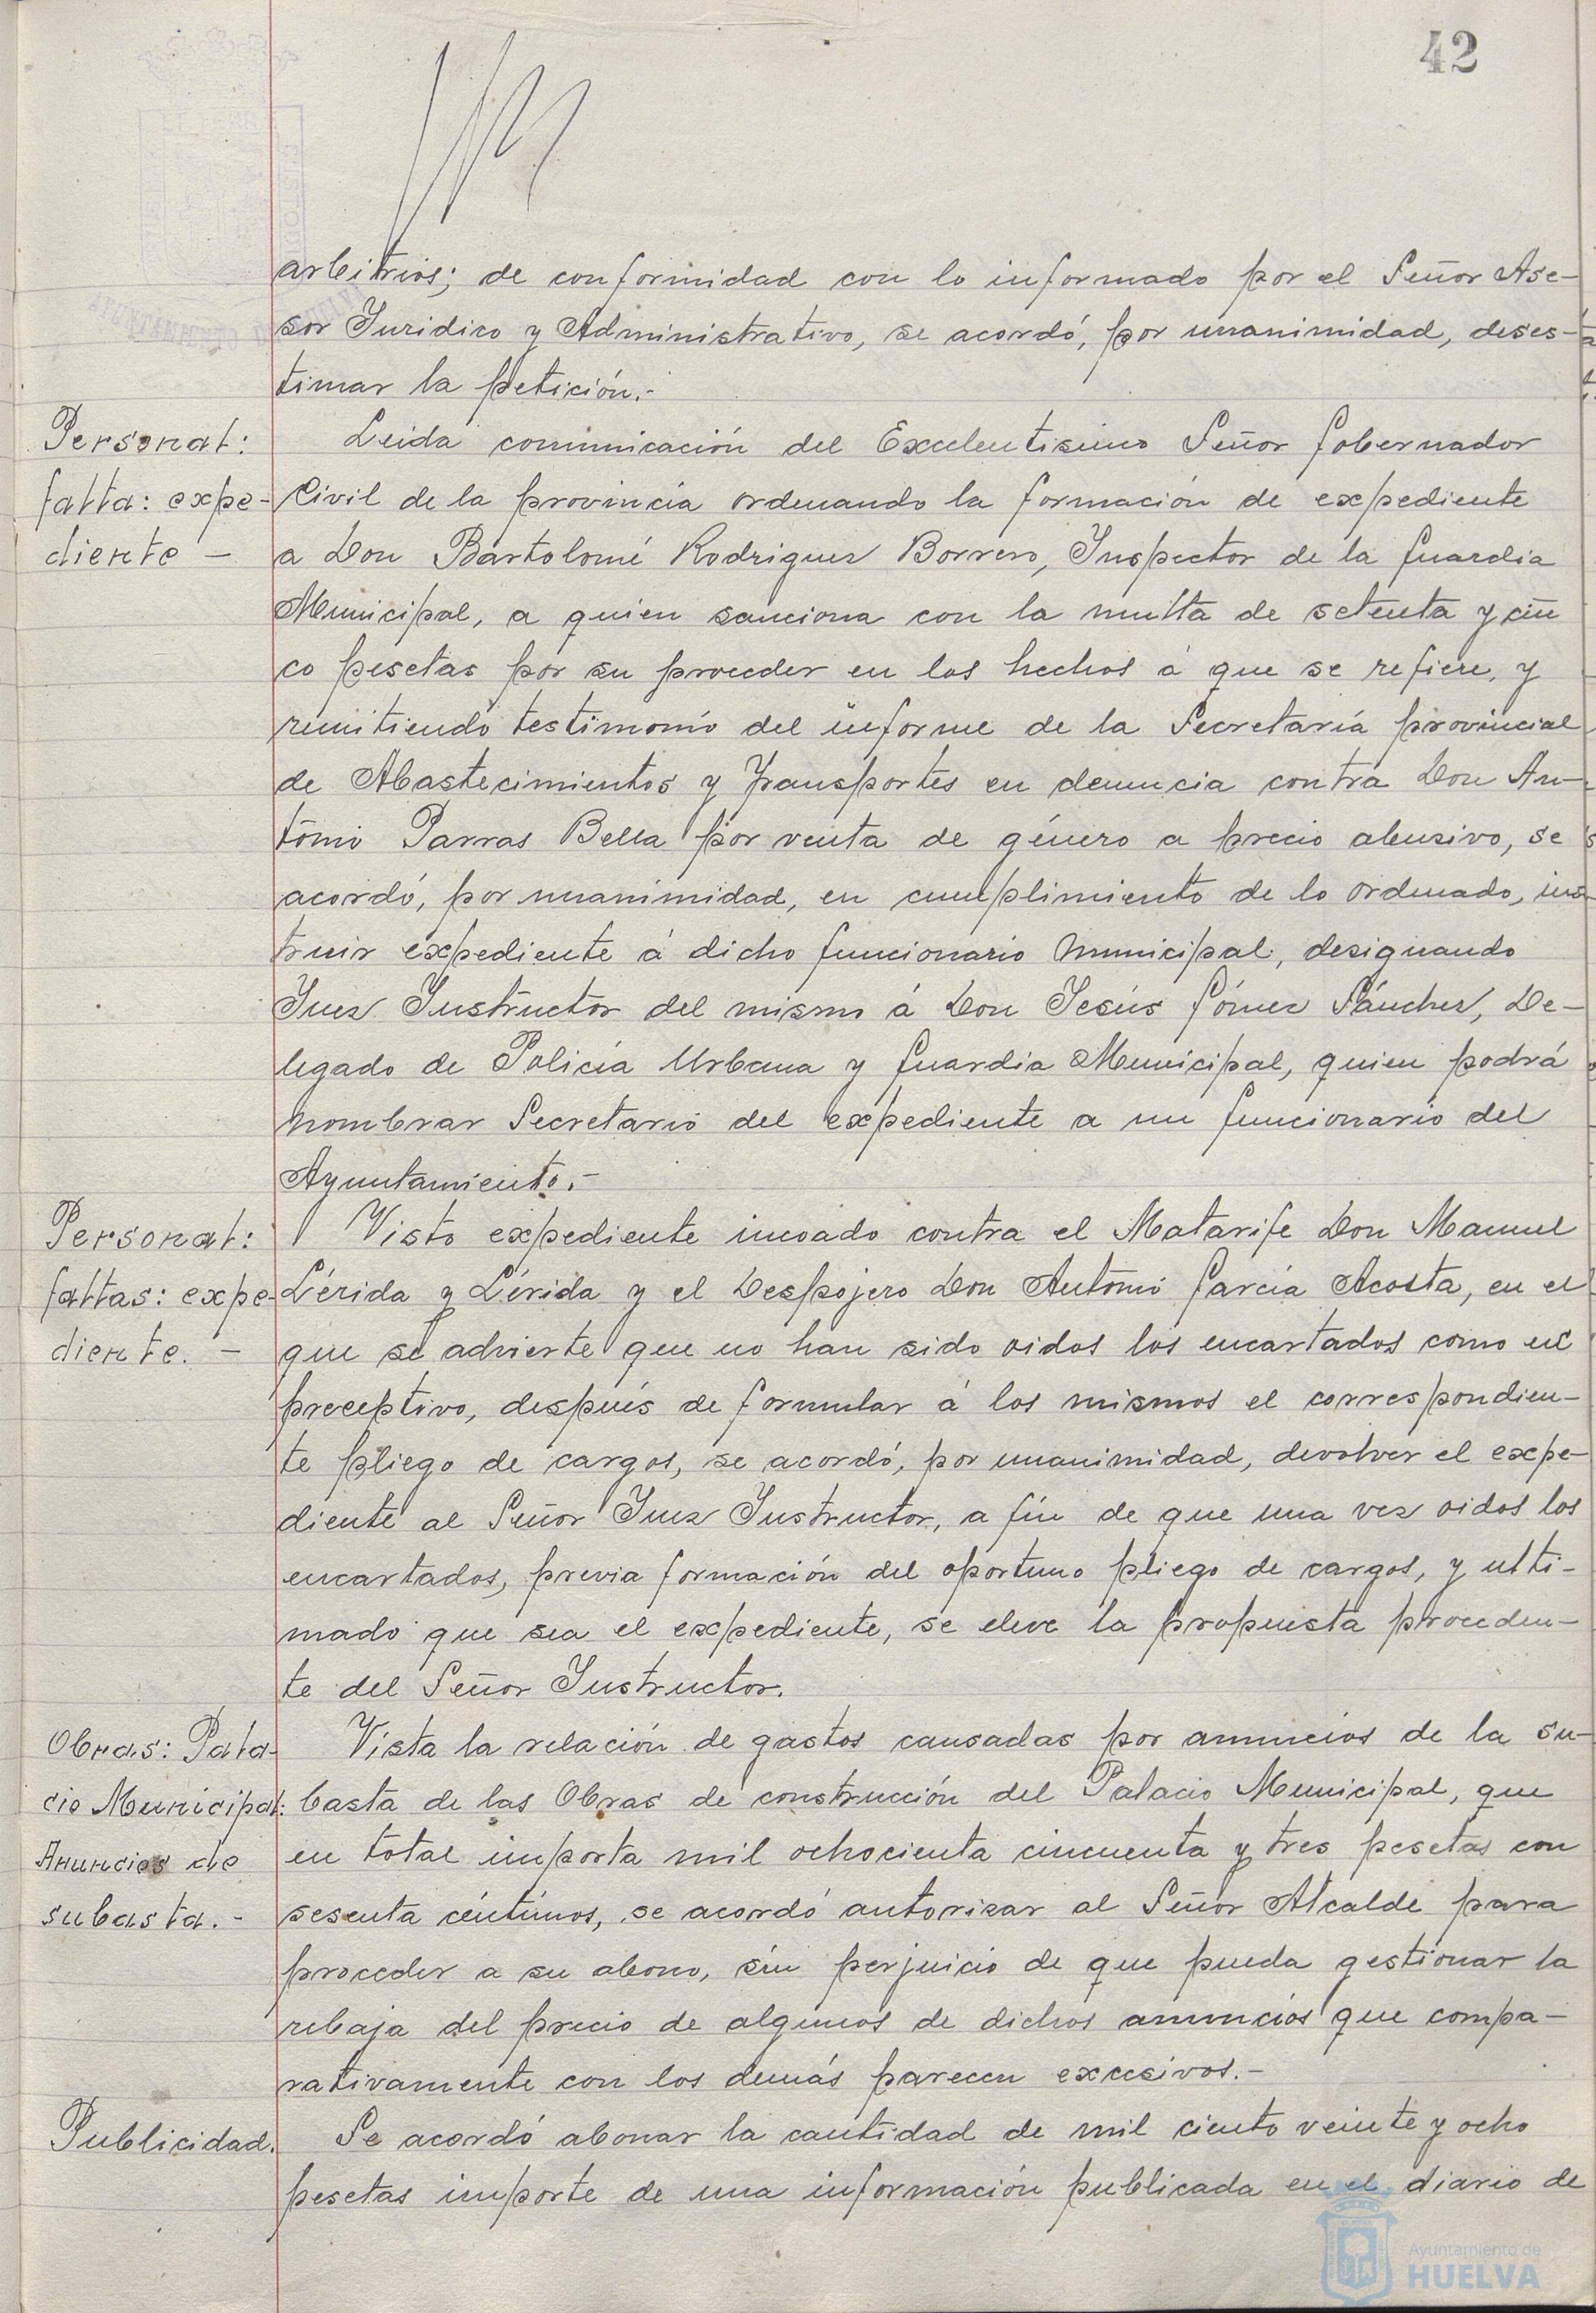 42
arbitrios; de conformidad con lo informado por el Señor Ase-
sor Juridico y Administrativo, se acordó, por unanimidad, deses-
timar la petición.-
Personal:
falta: expe-
diente -
Leida comunicación del Excelentisimo Señor Gobernador
Civil de la provincia ordenando la formación de expediente
a Don Bartolomé Rodriguez Borrero, Inspector de la Guardia
Municipal, a quien sanciona con la multa de setenta y cin
co pesetas por su proceder en los hechos á que se refiere, y
remitiendo testimonio del informe de la Secretaría provincial
de Abastecimientos y Transportes en denuncia contra Don An-
tonio Parras Bella por venta de género a precio abusivo, se
acordó, por unanimidad, en cumplimiento de lo ordenado, ins-
truir expediente á dicho funcionario Municipal, designando
Juez Instructor del mismo á Don Jesús Gómez Sánchez, De-
legado de Policía Urbana y Guardia Municipal, quien podrá
nombrar Secretario del expediente a un funcionario del
Ayuntamiento.-
Personal:
faltas: expe-
diente. -
Visto expediente incoado contra el Matarife Don Manuel
Lérida y Lérida y el Despojero Don Antonio García Acosta, en el
que se advierte que no han sido oidos los encartados como es
preceptivo, después de formular á los mismos el correspondien-
te pliego de cargos, se acordó, por unanimidad, devolver el expe-
diente al Señor Juez Instructor, a fin de que una vez oidos los
encartados, previa formación del oportuno pliego de cargos, y ulti-
mado que sea el expediente, se eleve la propuesta proceden-
te del Señor Instructor.
Obras: Pala-
cio Municipal:
Anuncios de
subasta.-
Vista la relación de gastos causadas por anuncios de la su-
basta de las Obras de construcción del Palacio Municipal, que
en total importa mil ochocienta cincuenta y tres pesetas con
sesenta céntimos, se acordó autorizar al Señor Alcalde para
proceder a su abono, sin perjuicio de que pueda gestionar la
rebaja del precio de algunos de dichos anuncios que compa-
rativamente con los demás parecen excesivos.-
Publicidad.
Se acordó abonar la cantidad de mil ciento veinte y ocho
pesetas importe de una información publicada en el diario de
Ayuntamiento de
HUELVA